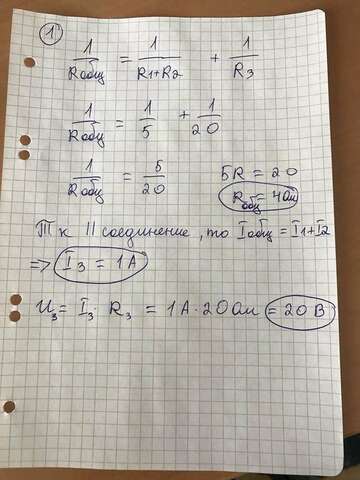 1
1/Rобщ = 1/R1+R2 + 1/R3
1/Rобщ = 1/5 + 1/20
1/Rобщ = 5/20 5R = 20
Rобщ = 4Ом
Тк II соединение, то Iобщ = I1+I2
=> I3 = 1A
U3 = I3 · R3 = 1A · 20Ом = 20В